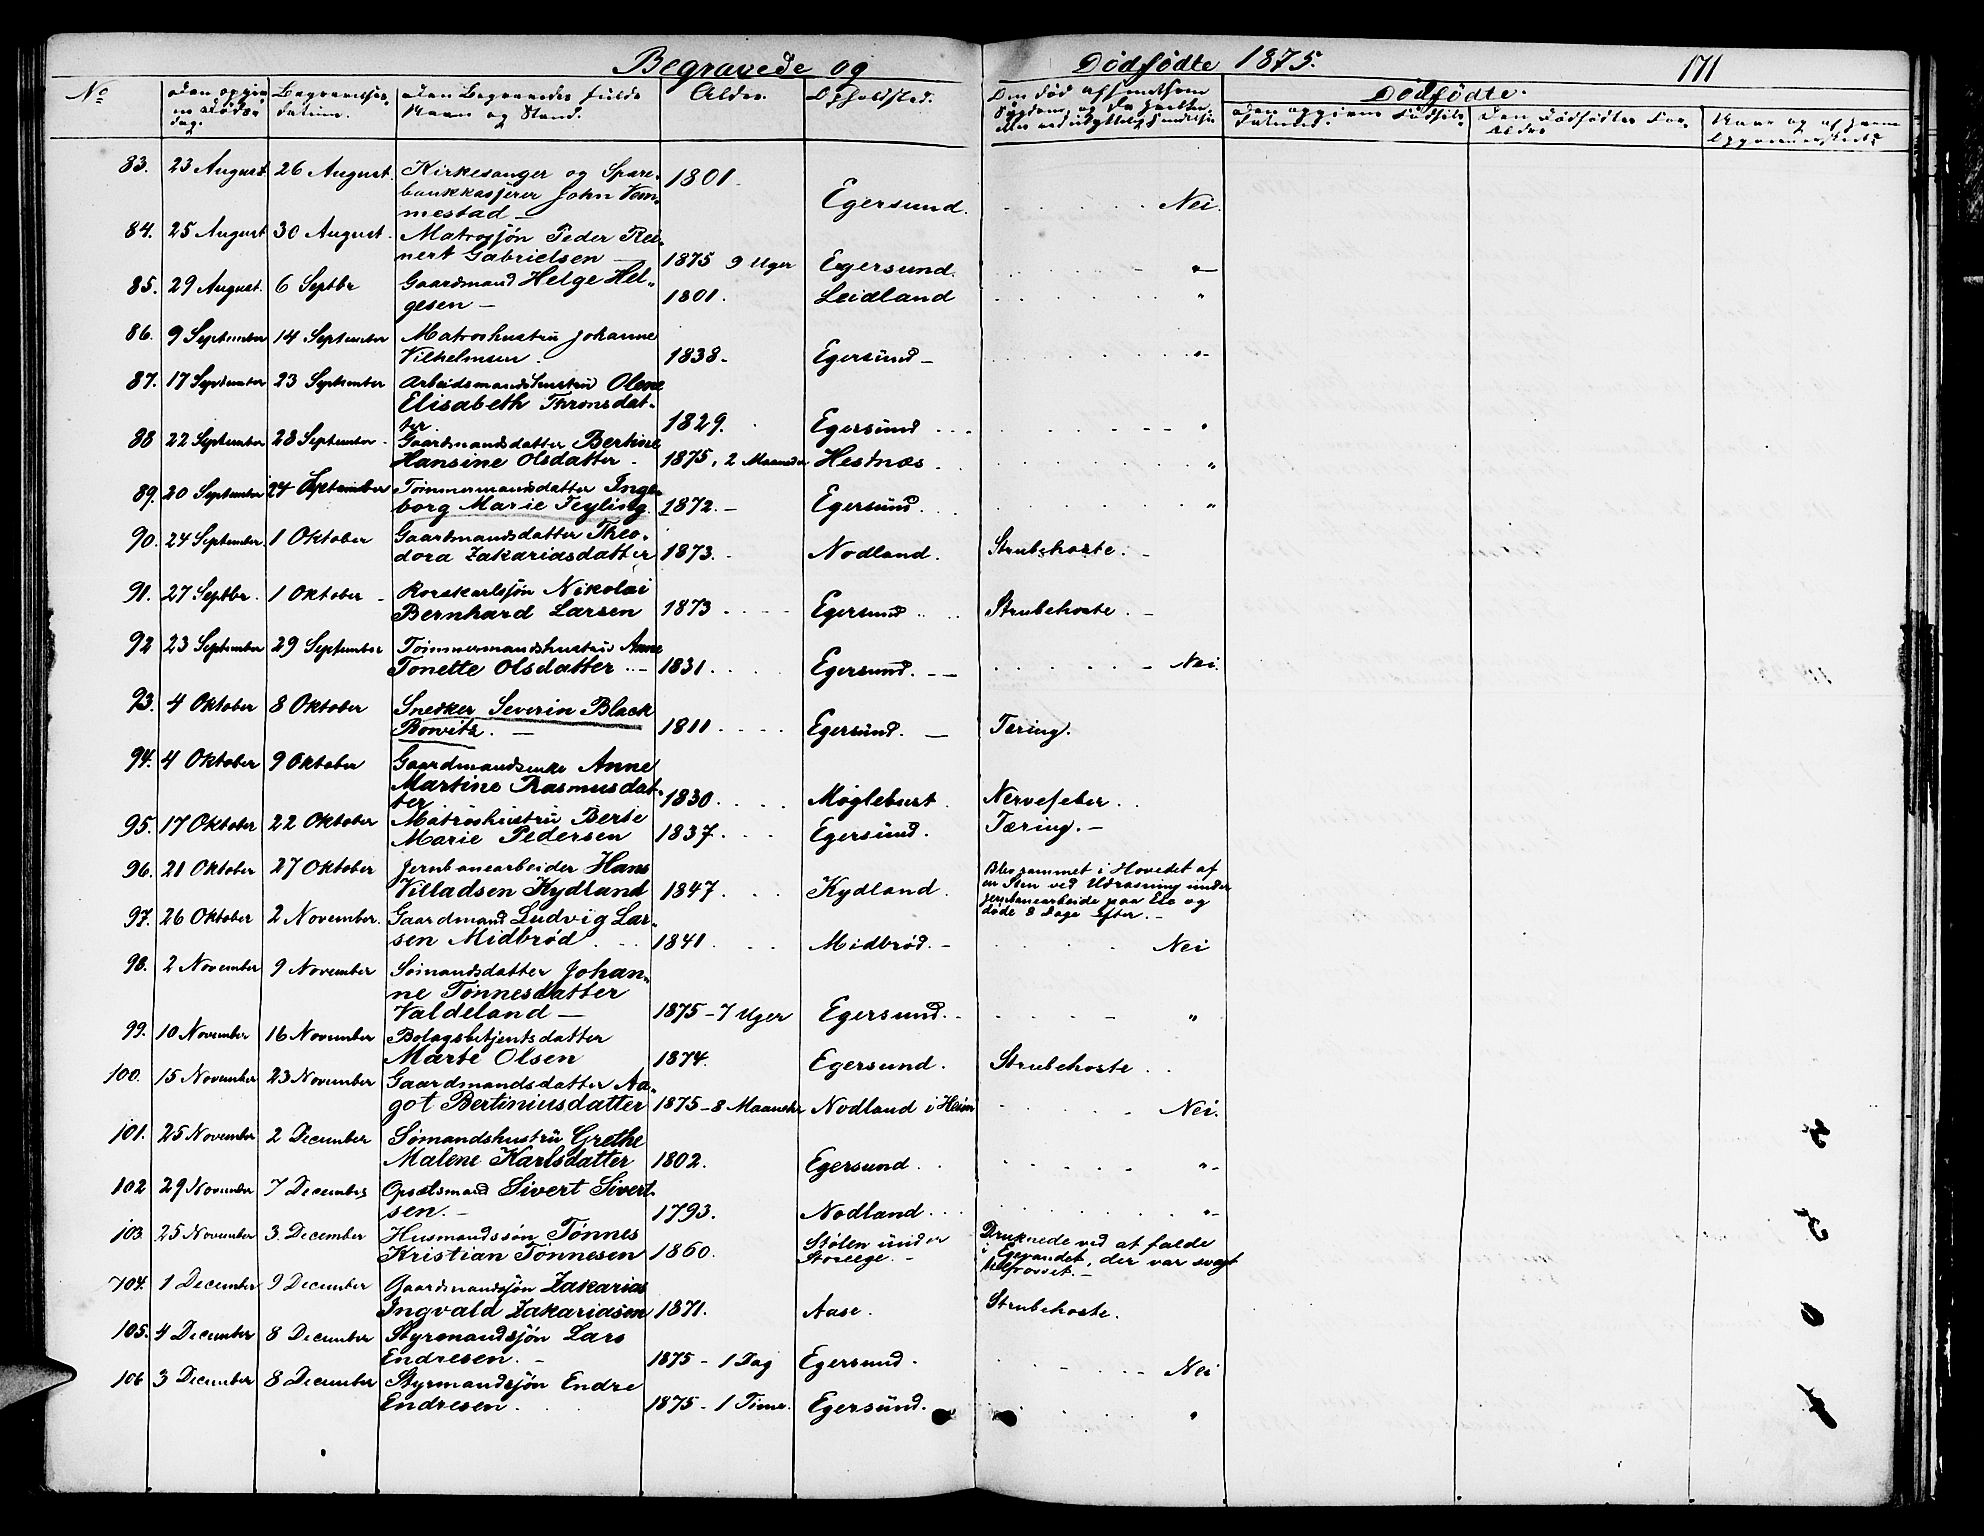 Begravede og Dødfødte 1875. 171
No Begravelses- Alder. Opholdssted. Dødfødte.
datum. Navn og Stand.
83. 23 August 26 August. Kirkesanger og Spare-
bankkasserer John Vem-
mestad – 1801. Egersund. Nei.
84. 25 August 30 August. Matrossøn Peder Rei-
nert Gabrielsen – 1875 9 Uger Egersund. "
85. 29 August. 6 Septbr Gaardmand Helge Hel-
gesen – 1801. Leidland "
86. 9 September 14 September Matroshustru Johanne
Vilhelmsen. 1838. Egersund – "
87. 17 September 23 September Arbeidsmandshustru Olene
Elisabeth Thronsdat-
ter. 1829. Egersund "
88 22 September 28 September. Gaardmandsdatter Bertine
Hansine Olsdatter. 1875, 2 Maaneder Hestnæs. "
89. 20 September 24 September Tømmermandsdatter Inge-
borg Marie Teyling. 1872. – Egersund. "
90. 24 September. 1 Oktober Gaardmandsdatter Theo-
dora Zakariasdatter 1873. Nodland. Strubehoste.
91. 27 Septbr. 1 Oktober Rorskarlssøn Nikolai
Bernhard Larsen 1873 Egersund Strubehoste.
92 23 September 29 September Tømmermandshustru Anne
Tonette Olsdatter 1831. Egersund. Nei.
93. 4 Oktober 8 Oktober Snedker Severin Black
Bowitz. – 1811 Egersund. – Tæring.
94. 4 Oktober 9 Oktober Gaardmandsenke Anne
Martine Rasmusdat-
ter 1830. Møglebust. Nervefeber.
95. 17 Oktober 22 Oktober Matroshustru Berte
Marie Pedersen 1837. Egersund. Tæring. –
96. 21 Oktober 27 Oktober Jernbanearbeider Hans
Villadsen Kydland 1847. Kydland. Blev rammet i Hovedet af
en Sten ved Udrasning under
Jernbanearbeide paa Eie og
døde 8 Dage efter. –
97. 26 Oktober 2 November. Gaardmand Ludvig Lar-
sen Midbrød. 1841. Midbrød. – Nei
98. 2 November 9 November Sømandsdatter Johan-
ne Tønnesdatter
Valdeland – 1875 – 7 Uger Egersund. "
99. 10 November 16 November Bolagsbetjentsdatter
Marte Olsen 1874. Egersund. Strubehoste
100. 15 November 23 November Gaardmandsdatter Aa-
got Bertiniusdatter 1875 – 8 Maaneder Nodland i Heim Nei.
101. 25 November 2 December Sømandshustru Grethe
Malene Karlsdatter 1802. Egersund "
102 29 November 7 December Opsætsmand Sivert Sivert-
sen. – 1793. Nodland "
103. 25 November 3 December Husmandssøn Tønnes
Kristian Tønnesen 1860. Stølen under
Storeege. – Druknede ved at falde
i Egevandet, der var svagt
tilfrosset. –
104. 1 December 9 December Gaardmandssøn Zakarias
Ingvald Zakariasen 1871. Aase. Strubehoste.
105. 4 December 8 December Styrmandssøn Lars
Endresen. – 1875 – 1 Dag Egersund. Nei
106 3 December 8 December Styrmandssøn Endre
Endresen. 1875 – 1 Time. Egersund. "